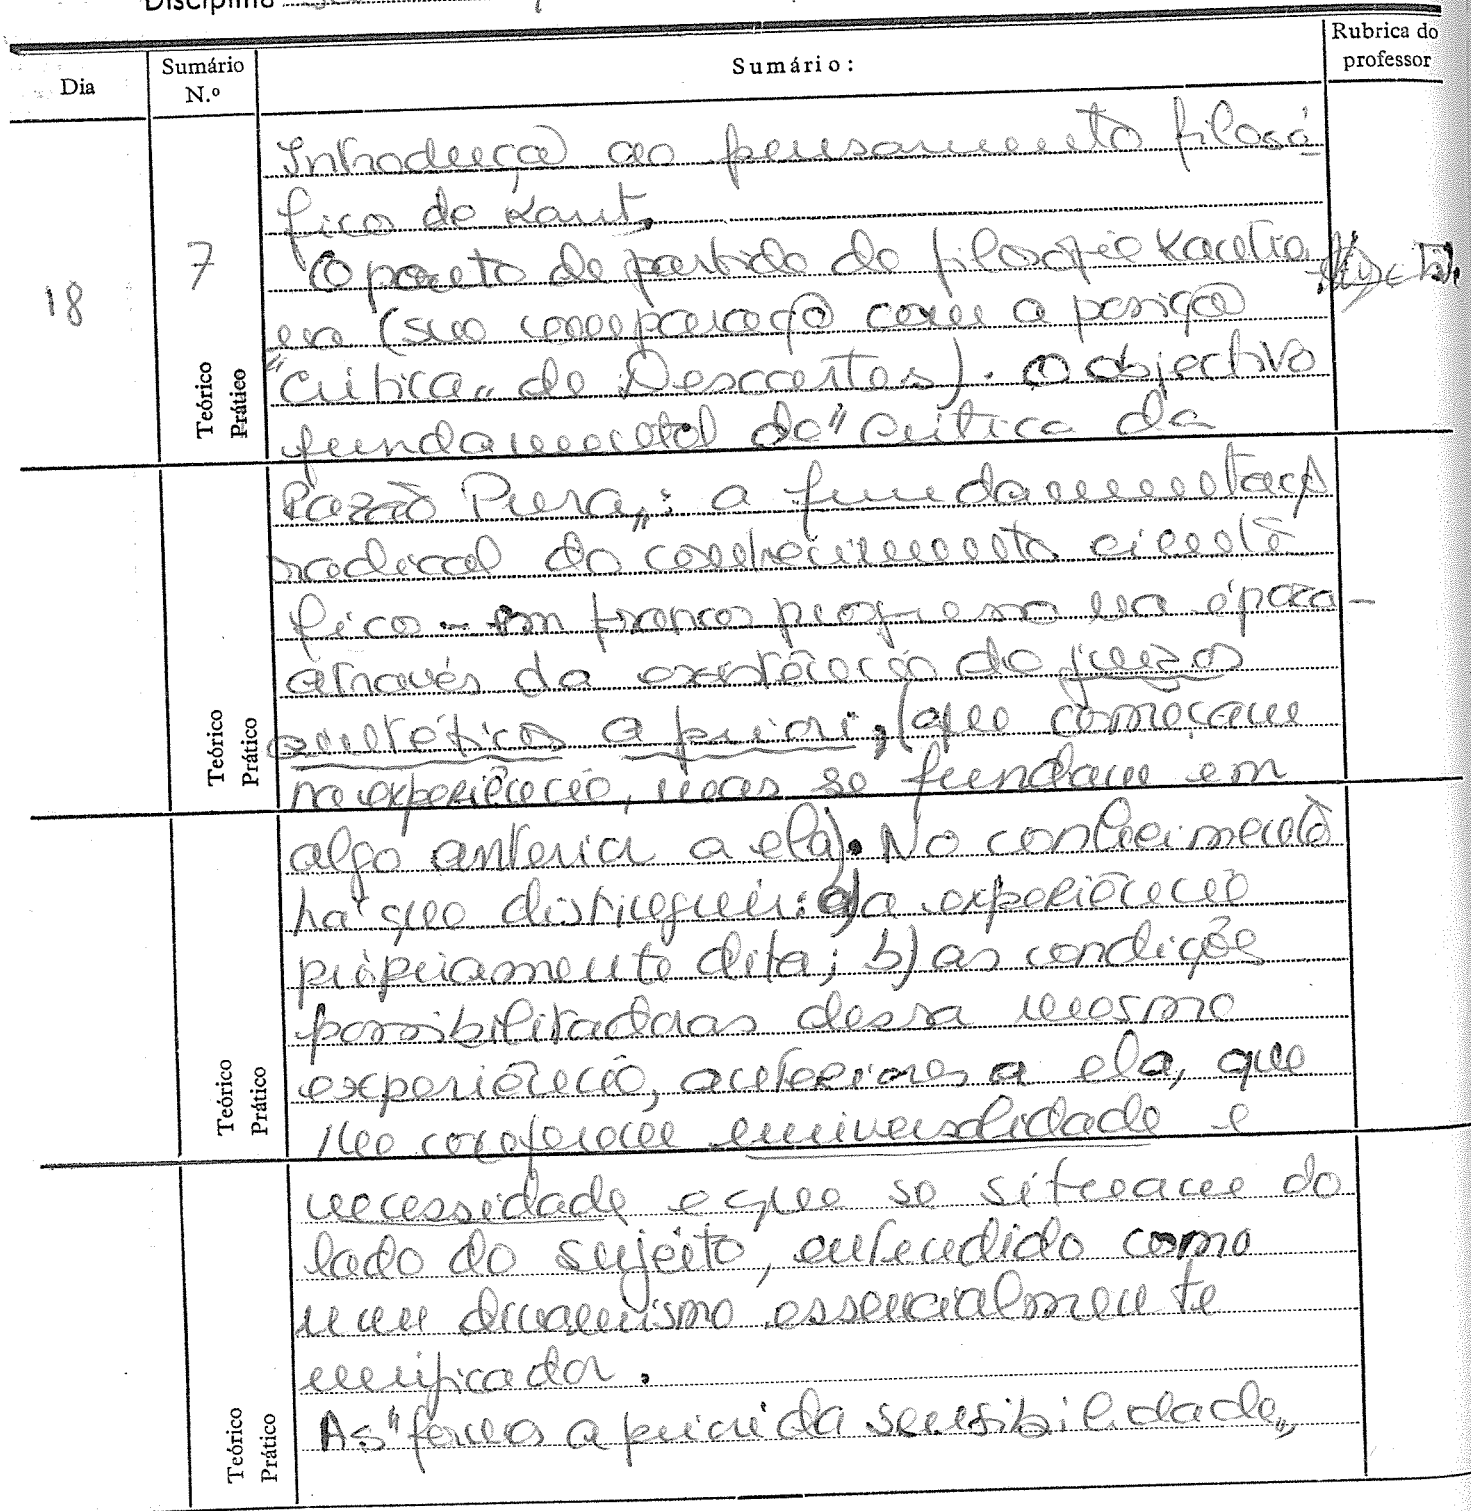 Disciplina
Dia
Sumário N.º
Sumário:
Rubrica do professor
18
7
Teórico
Prático
Introdução ao pensamento filosó
fico de Kant.
O ponto de partida da filosofia Kantia
na (sua comparação com a posição
"crítica" de Descartes). O objectivo
fundamental da "Crítica da
Razão Pura": a fundamentação
radical do conhecimento cientí
fico - em franco progresso na época -
através da existência de juízos
sintéticos a priori, (que começam
na experiência, mas se fundam em
algo anterior a ela). No conhecimento
há que distinguir: a) a experiência
pròpriamente dita; b) as condições
possibilitadoras dessa mesma
experiência, anteriores a ela, que
lhe conferem universalidade e
necessidade e que se situam do
lado do sujeito, entendido como
um dinamismo essencialmente
unificador.
As "formas a priori da sensibilidade"
Teórico
Prático
Teórico
Prático
Teórico
Prático